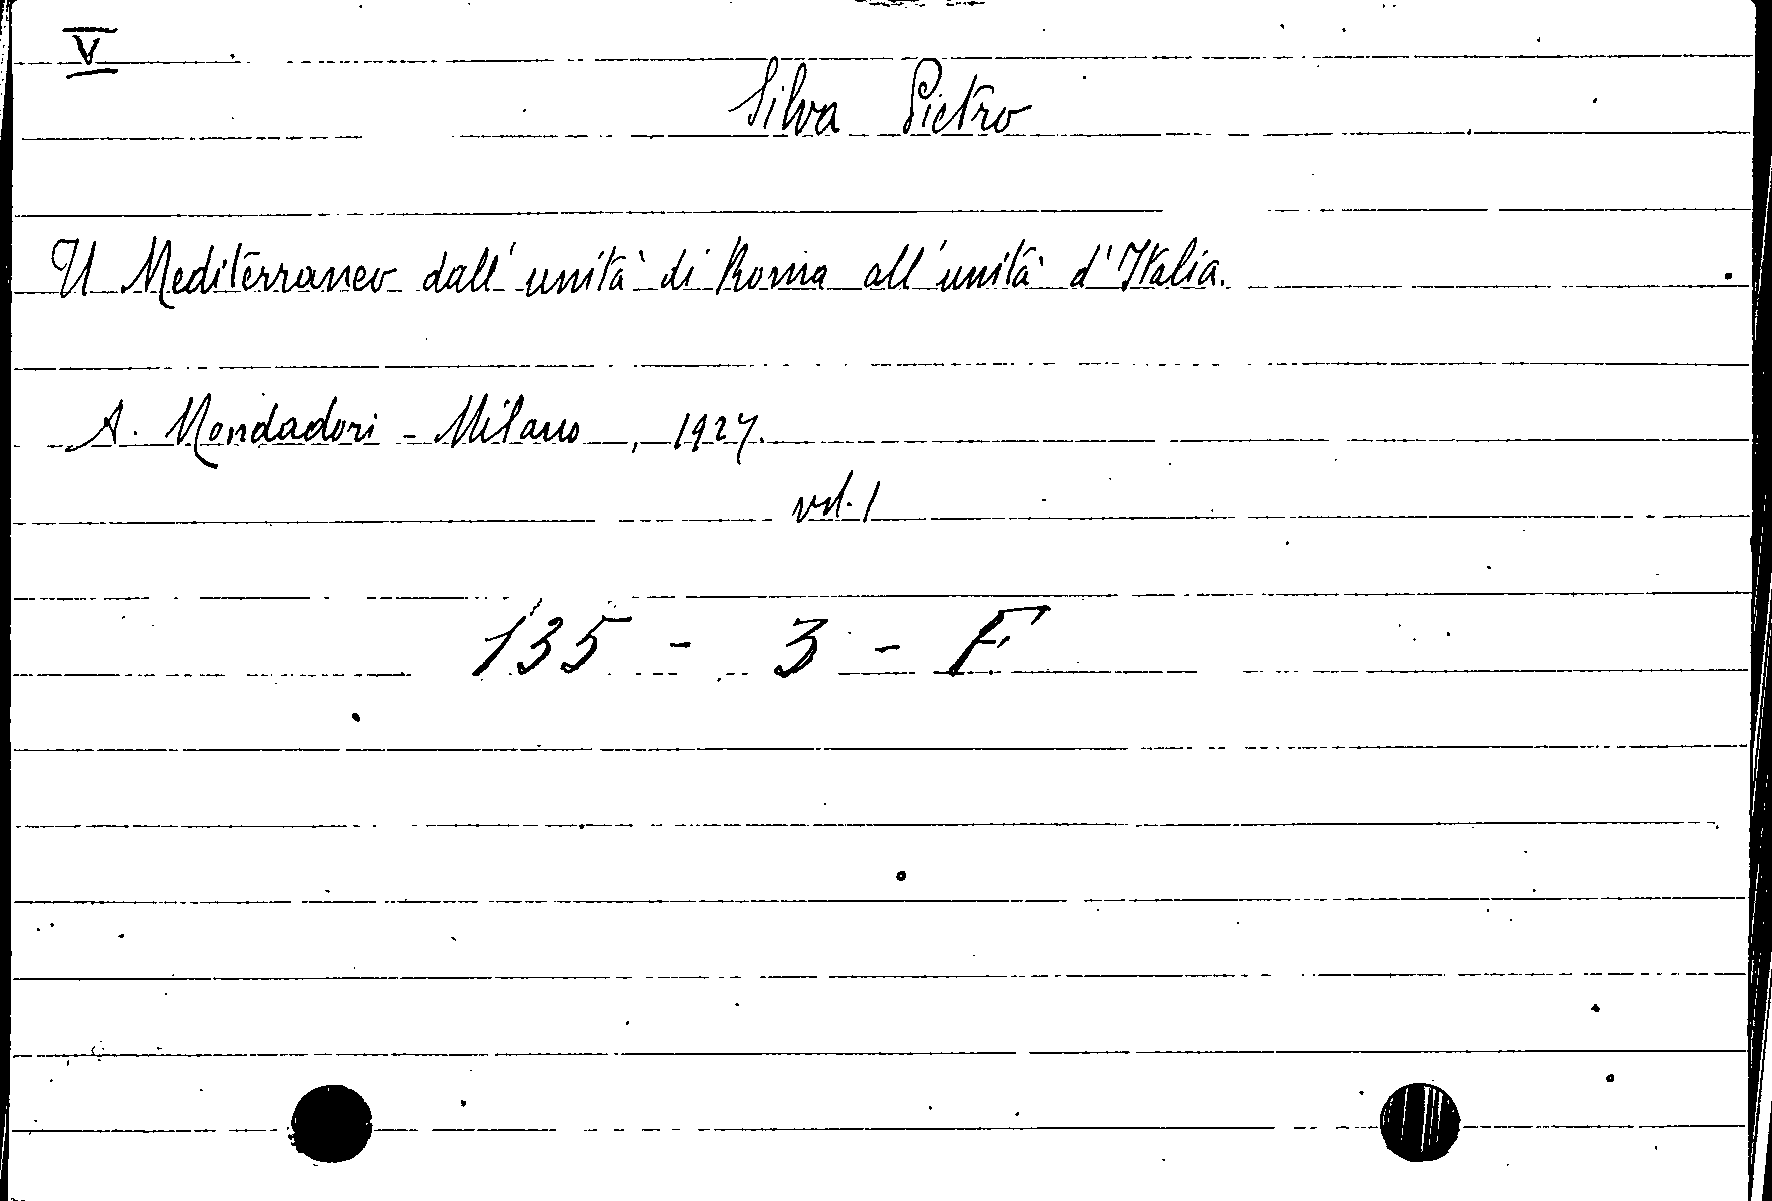 V
Silva Pietro
Il Mediterraneo dall'unità di Roma all'unità d'Italia.
A. Mondadori - Milano, 1927.
vol. 1
135 - 3 - F